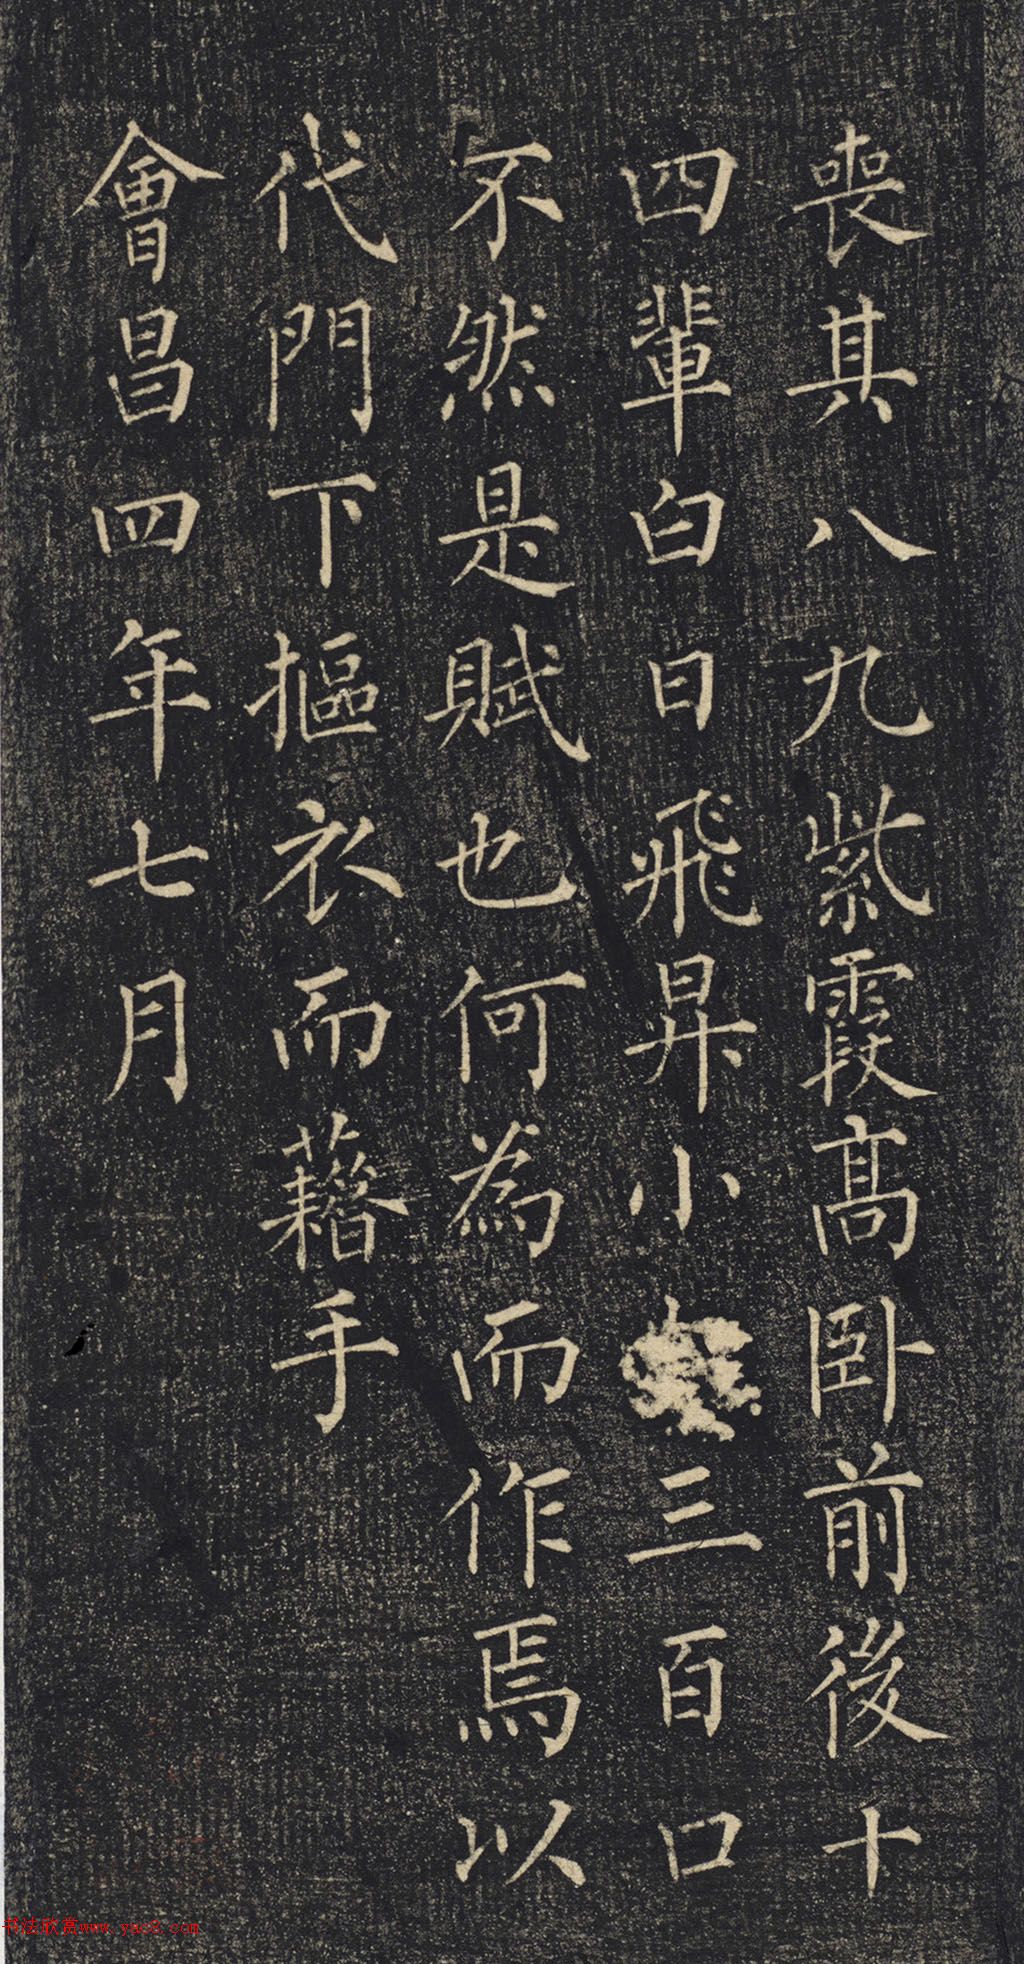 喪其八九紫霞高卧前後十
四輩白日飛昇小三百口
不然是賦也何為而作焉以
代門下摳衣而藉手
會昌四年七月
书法欣赏www.yac8.com